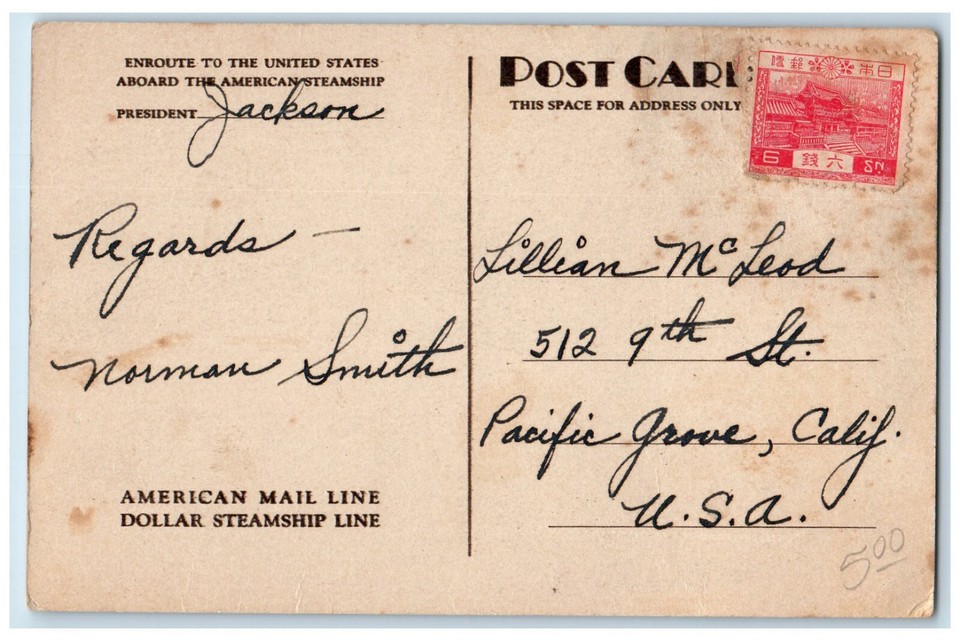 ENROUTE TO THE UNITED STATES
ABOARD THE AMERICAN STEAMSHIP
PRESIDENT Jackson
Regards —
Norman Smith
AMERICAN MAIL LINE
DOLLAR STEAMSHIP LINE
POST CARD
THIS SPACE FOR ADDRESS ONLY
便郵 本日
6 六銭 SN.
Lillian McLeod
512 9th St.
Pacific Grove, Calif.
U.S.A.
5.00